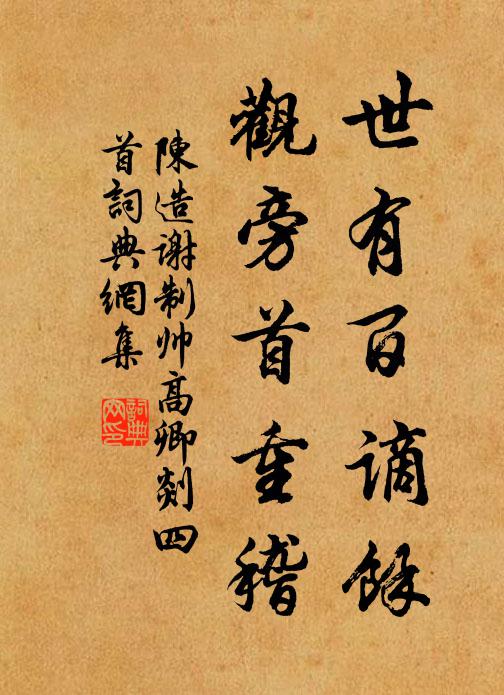 世有百謫餘
觀旁首重稽
陳造謝制帅高卿剡四
首詞典網集
詞典网印